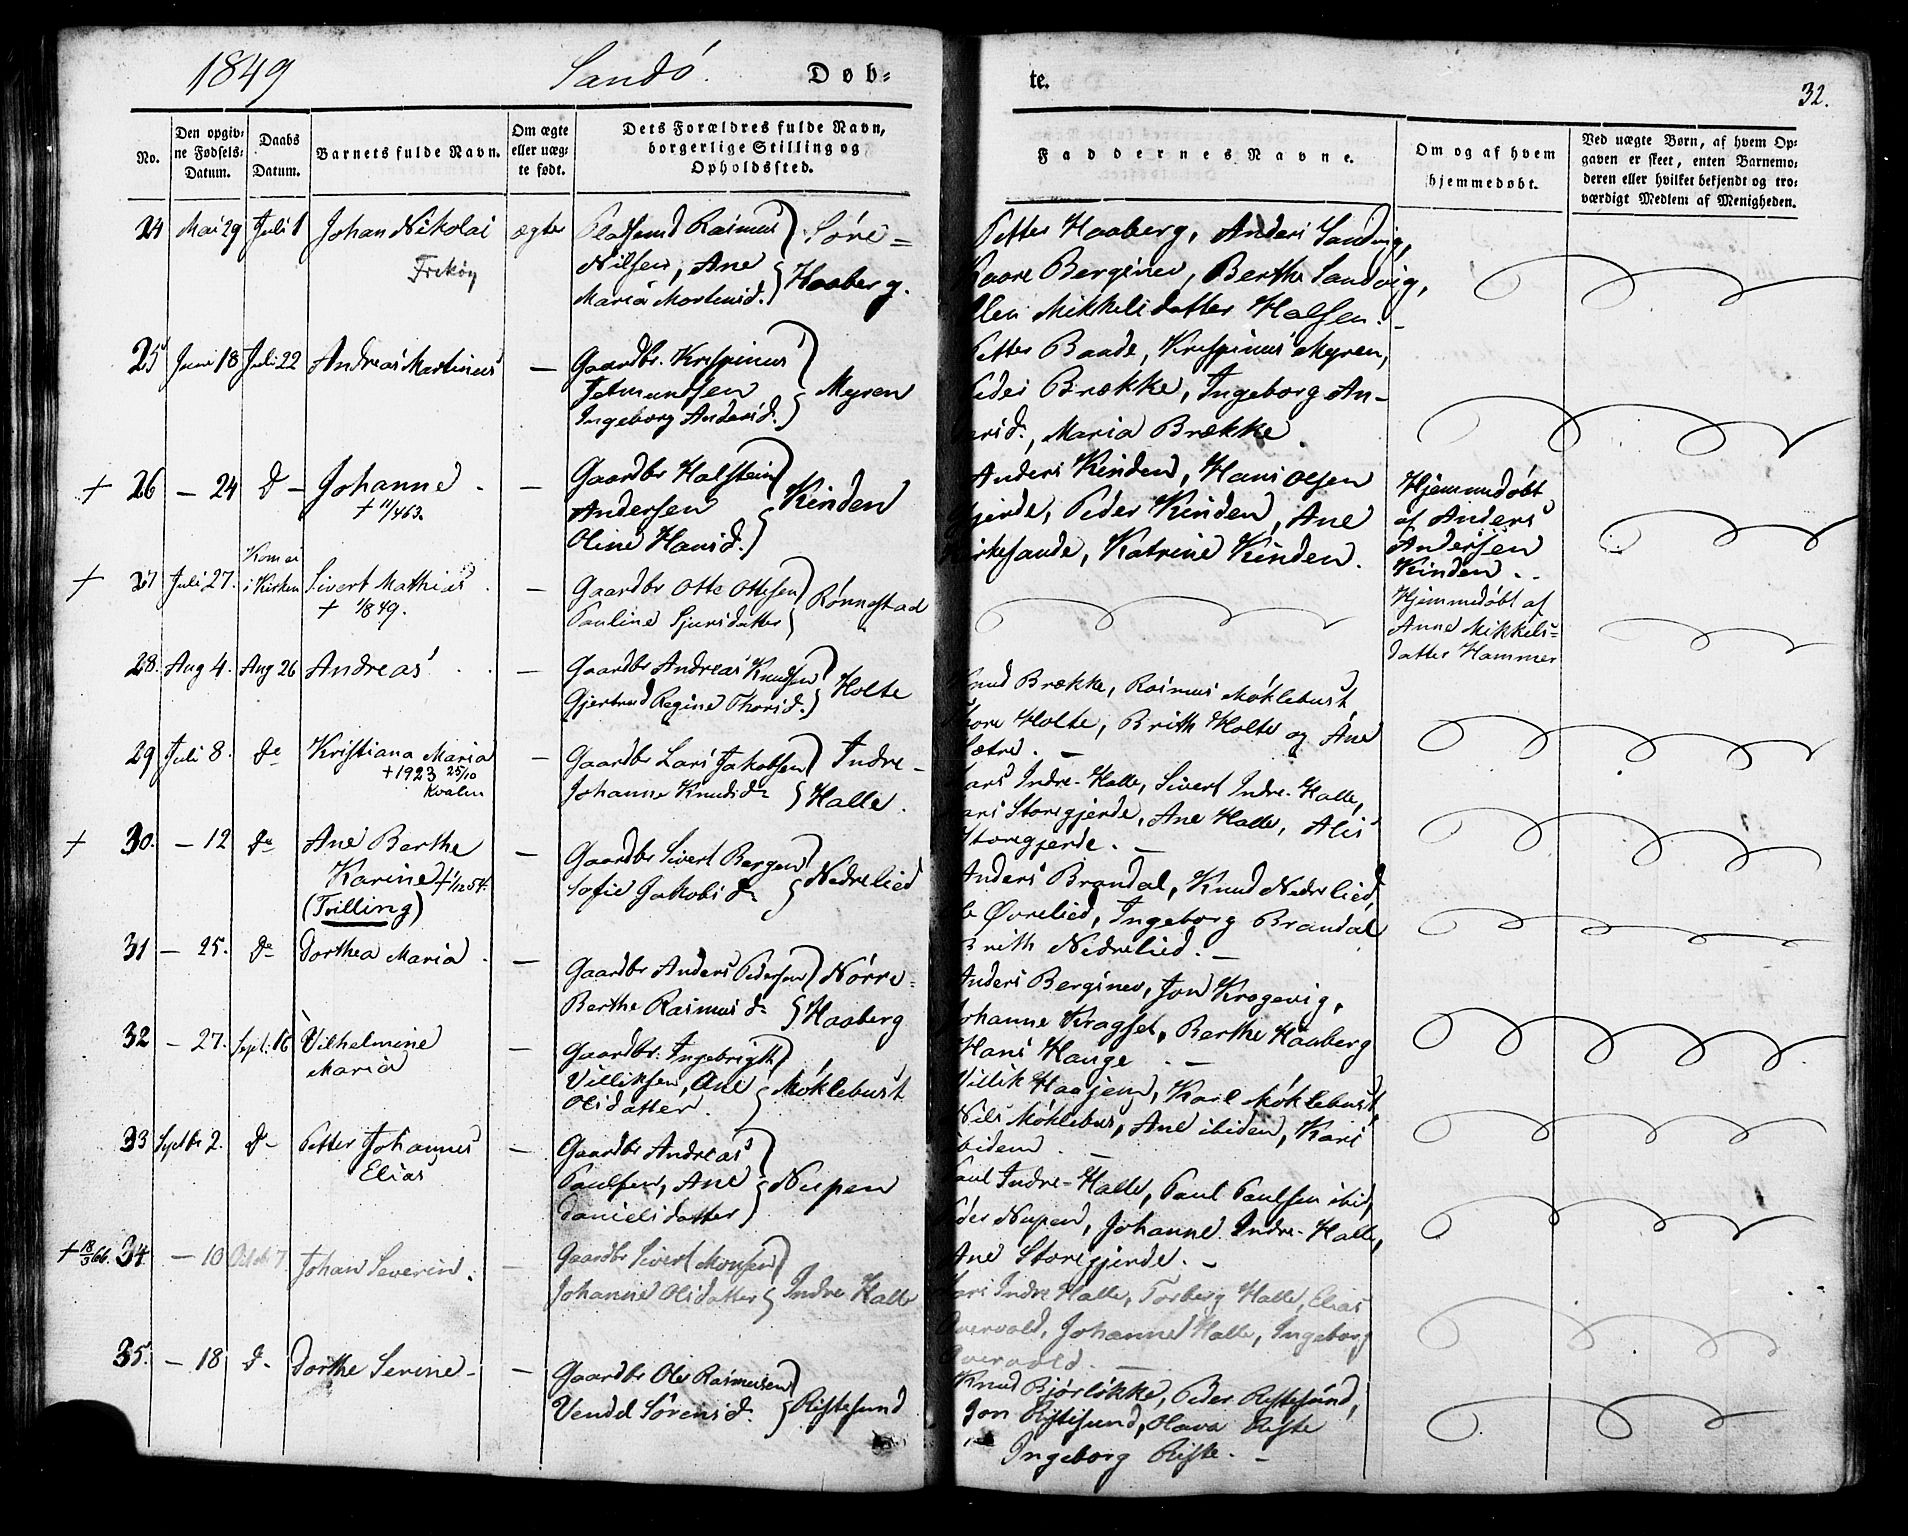 1849 Sandö. Døb-
te. 32.
No.
Den opgiv-
ne Fødsels-
Datum.
Daabs
Datum.
Barnets fulde Navn.
Om ægte
eller uæg-
te født.
Dets Forældres fulde Navn,
borgerlige Stilling og
Opholdssted.
Faddernes Navne.
Om og af hvem
hjemmedøbt.
Ved uægte Børn, af hvem Op-
gaven er skeet, enten Barnemo-
deren eller hvilket bekjendt og tro-
værdigt Medlem af Menigheden.
24 Mai 29 Juli 1 Johan Nikolai ægte
Pladsmd Rasmus Söre-
Nilsen, Ane
Maria Mortensd. Haaberg.
Petter Haaberg, Anders Sandvig,
Kaare Berginev, Berthe Sandvig,
Mikkelsdatter Halsen.
25 Juni 18 Juli 22 Andreas Martinus —
Gaardbr. Krispinus
Myren
Ingeborg Andersd.
Petter Baade, Krispinus Myren,
Peder Brække, Ingeborg An-
, Maria Brække
+ 26 — 24 d— Johanne —
+ 11/4 63.
Gaardbr Halstein
Andersen Kinden
Oline Hansd.
Anders Kinden, Hans Olsen
Gjerde, Peder Kinden, Ane
Kirkesande, Katrine Kinden.
Hjemmedöbt
af Anders
Andersen
Kinden.
+ 27 Juli 27. Kom ei
i Kirken Sivert Mathias —
+ 1/8 49.
Gaardbr Otte Ottesen
Pauline Sjursdatter Rønnestad
Hjemmedöbt af
Anne Mikkels-
datter Hammer
28. Aug 4. Aug 26 Andreas —
Gaardbr Andreas Knudsen
Gjertrud Regine Thorsd. Holte
Knud Brække, Rasmus Möklebust,
Thore Holte, Brith Holte og Ane
Sætre. —
29 Juli 8. do Kristiana Maria —
+ 1923 25/10
Kvalen
Gaardbr Lars Jakobsen Indre-
Johanne Knudsdr Halle.
Lars Indre-Halle, Sivert Indre-Halle,
Storegjerde, Ane Halle,
Storegjerde. —
+ 30. — 12 do Ane Berthe —
Karine
(Tvilling)
Gaardbr Sivert Bergen
Sofie Jakobsdr Nedrelied
Anders Brandal, Knud Nedrelied,
Øvrelied, Ingeborg Brandal
Brith Nedrelied. —
31 — 25. do Dorthea Maria. —
Gaardbr Anders Pedersen Nörre-
Berthe Rasmusdr Haaberg
Anders Berginev, Jon Krogevig,
Johanne Kragset, Berthe Haaberg
Hans Hauge —
32 — 27. Sept. 16 Vilhelmine —
Maria
Gaardbr. Ingebrigth
Villiksen, Ane Möklebust
Olsdatter.
Villik Haajem, Karl Möklebust,
Nils Möklebus, Ane ibidem, Kari
ibidem. —
33 Septbr 2. d— Petter Johannes —
Elias
Gaardbr Andreas
Paulsen, Ane Nupen
Danielsdatter
Paul Indre-Halle, Paul Paulsen ibid,
Peder Nupen, Johanne Indre-Halle,
Ane Storegjerde. —
+ 18/3 66. 34 — 10 Octob 7 Johan Severin. —
Gaardbr Sivert Monsen
Johanne Olsdatter Indre Halle
Indre Halle, Torberg Halle, Elias
Overvold, Johanne Halle, Ingeborg
Overvold. —
35. — 18 d— Dorthe Serine —
Gaardbr Ole Rasmusen
Vendel Sörensd. Ristesund
Knud Bjørlökke, Peder Ristesund,
Jon Ristesund, Olava Riste
Ingeborg Riste. —